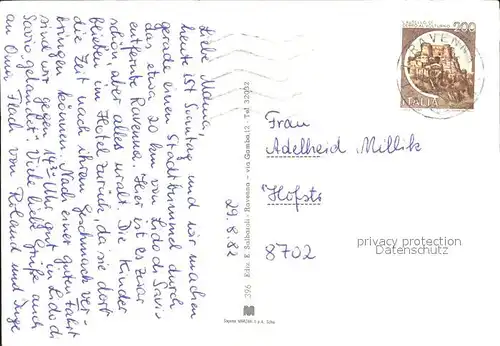 Liebe Mama,
heute ist Sonntag und wir machen
gerade einen Stadtbummel durch
das etwa 20 km von Lido di Savio
entfernte Ravenna. Hier ist es zwar
schön, aber alles uralt. Die Kinder
blieben im Hotel zurück, da sie dort
die Zeit nach ihrem Geschmack ver-
bringen können. Nach einer guten Fahrt
sind wir gegen 14³⁰ Uhr gut in Lido di
Savio gelandet. Viele liebe Grüße auch
an Oma, Flach von Roland und Inge
29.8.82
396 Ediz. E. Salbaroli - Ravenna - via Gamba, 12 - Tel. 32252
200
RAVENNA
ITALIA
Frau
Adelheid Millik
Hofstr
8702
privacy protection
Datenschutz